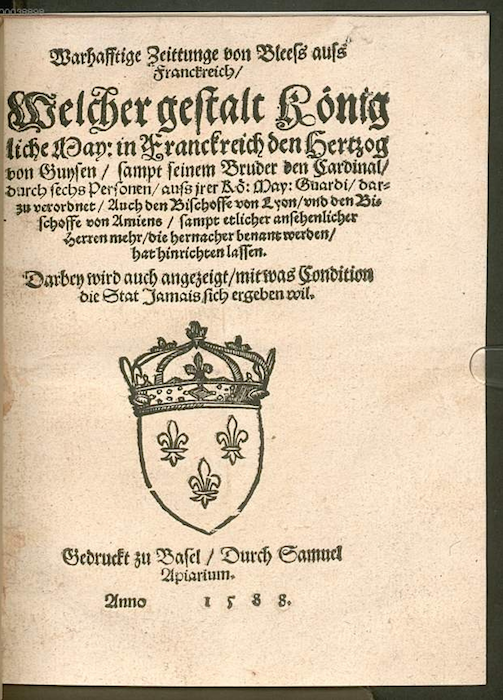 00038898
Warhafftige Zeittunge von Bleess auss
Franckreich/
Welcher gestalt König
liche May: in Franckreich den Hertzog
von Guysen / sampt seinem Bruder den Cardinal/
durch sechs Personen/ auß jrer Kö: May: Guardi/ dar-
zu verordnet / Auch den Bischoffe von Lyon/vnd den Bi-
schoffe von Amiens / sampt etlicher ansehenlicher
Herren mehr/die hernacher benant werden/
hat hinrichten lassen.
Darbey wird auch angezeigt/mit was Condition
die Stat Jamais sich ergeben wil.
Gedruckt zu Basel / Durch Samuel
Apiarium.
Anno 1588.